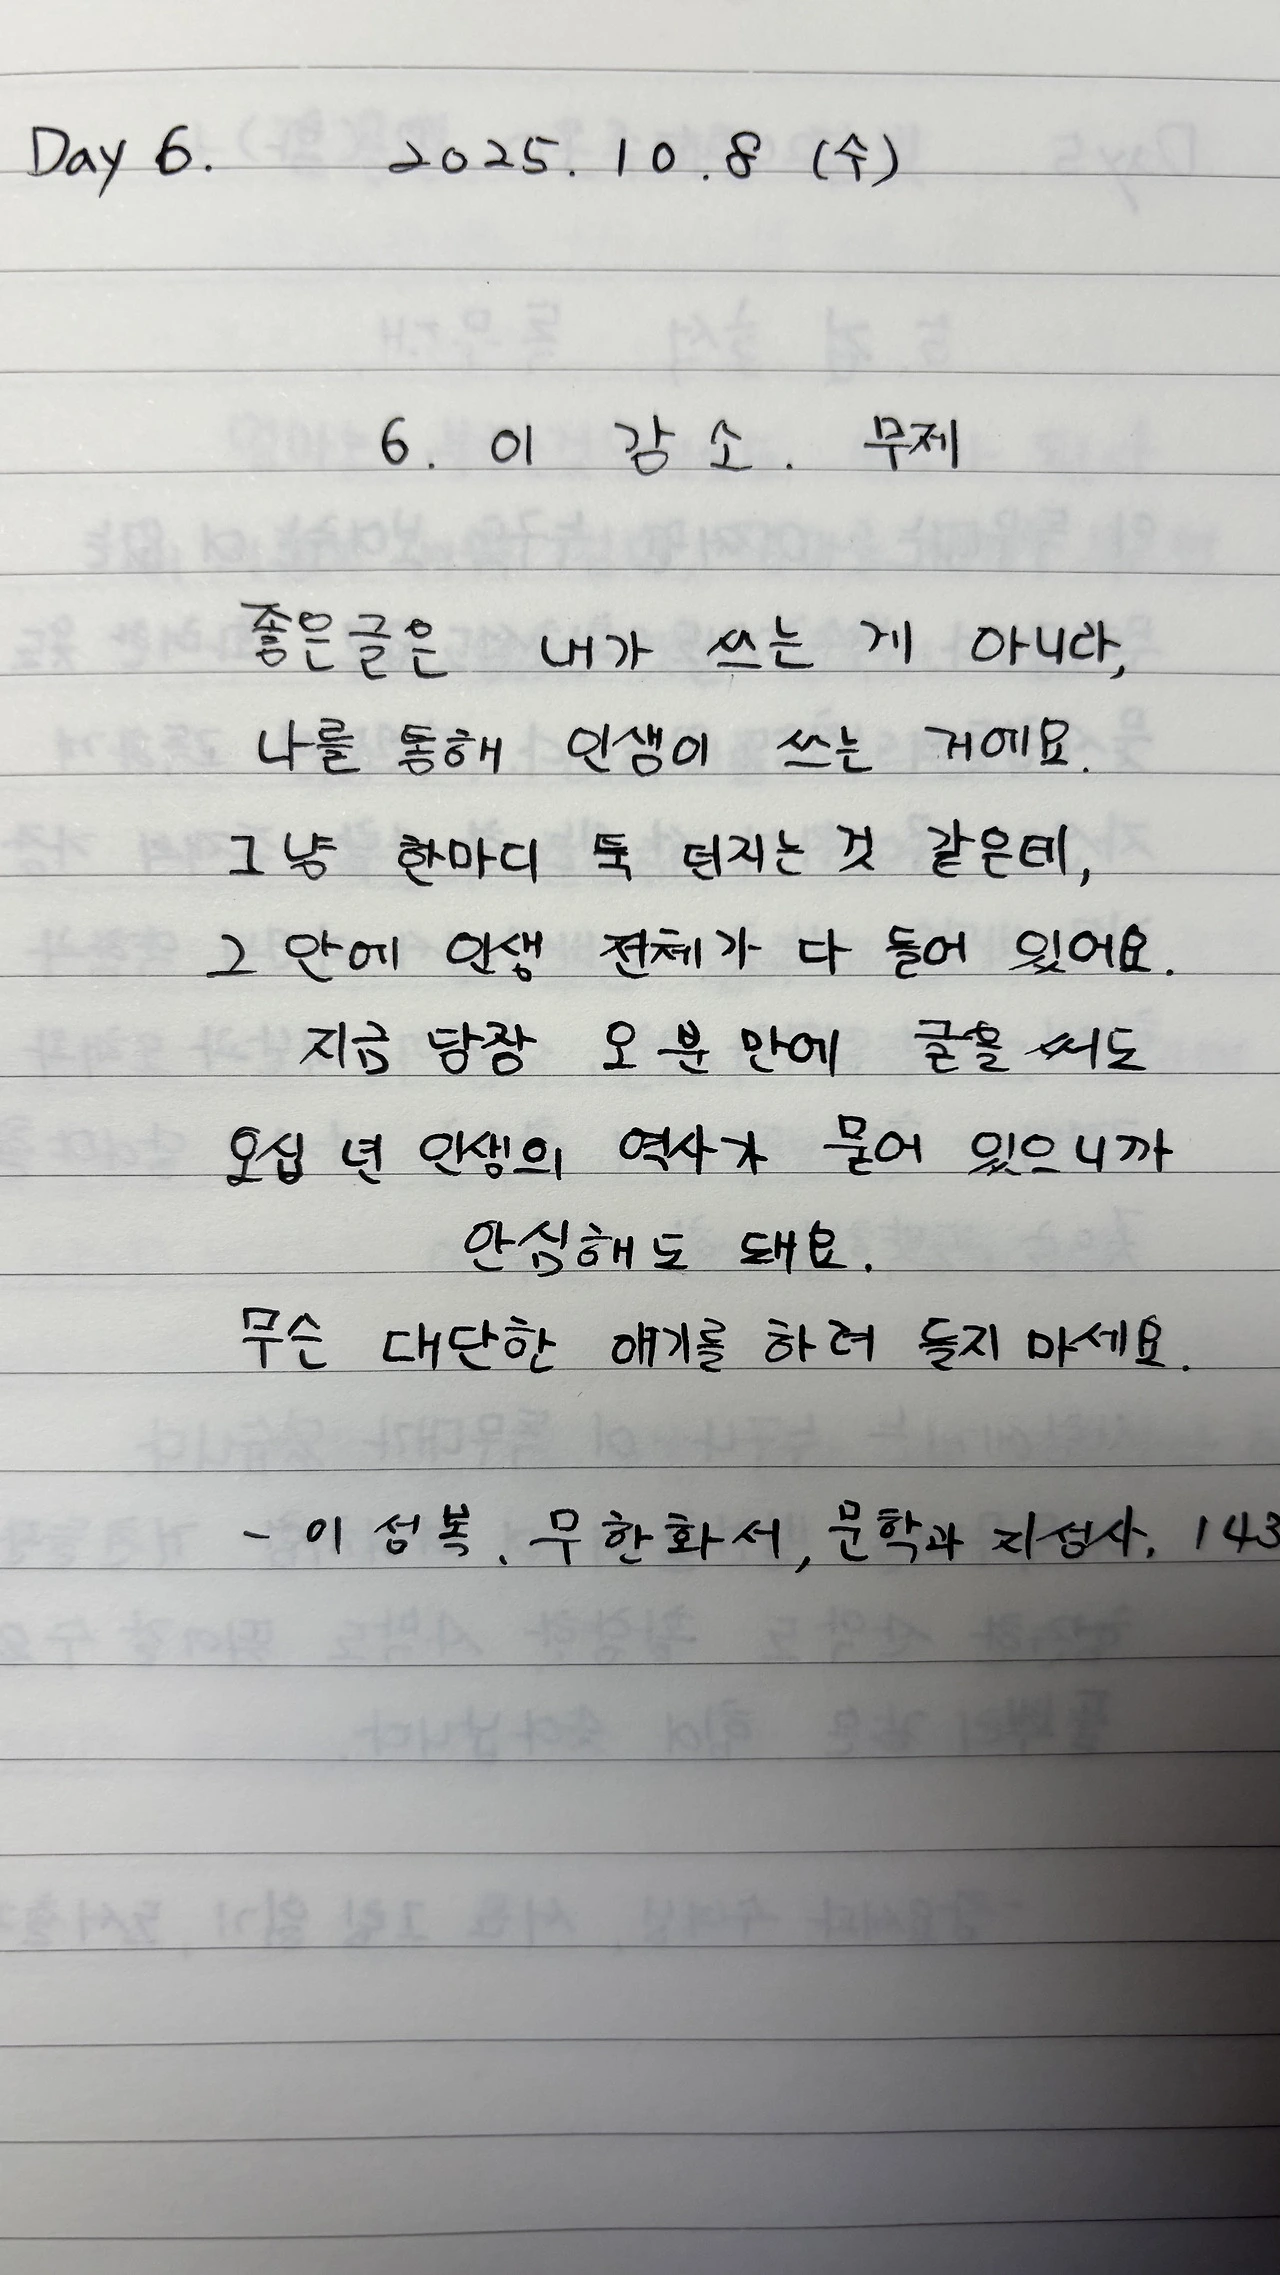 Day 6. 2025. 10. 8 (수)
6. 이 감 소. 무제
좋은글은 내가 쓰는 게 아니라,
나를 통해 인생이 쓰는 거예요.
그냥 한마디 툭 던지는 것 같은데,
그 안에 인생 전체가 다 들어 있어요.
지금 당장 오 분 만에 글을 써도
오십 년 인생의 역사가 묻어 있으니까
안심해도 돼요.
무슨 대단한 얘기를 하려 들지 마세요.
- 이성복. 무한화서, 문학과 지성사. 143